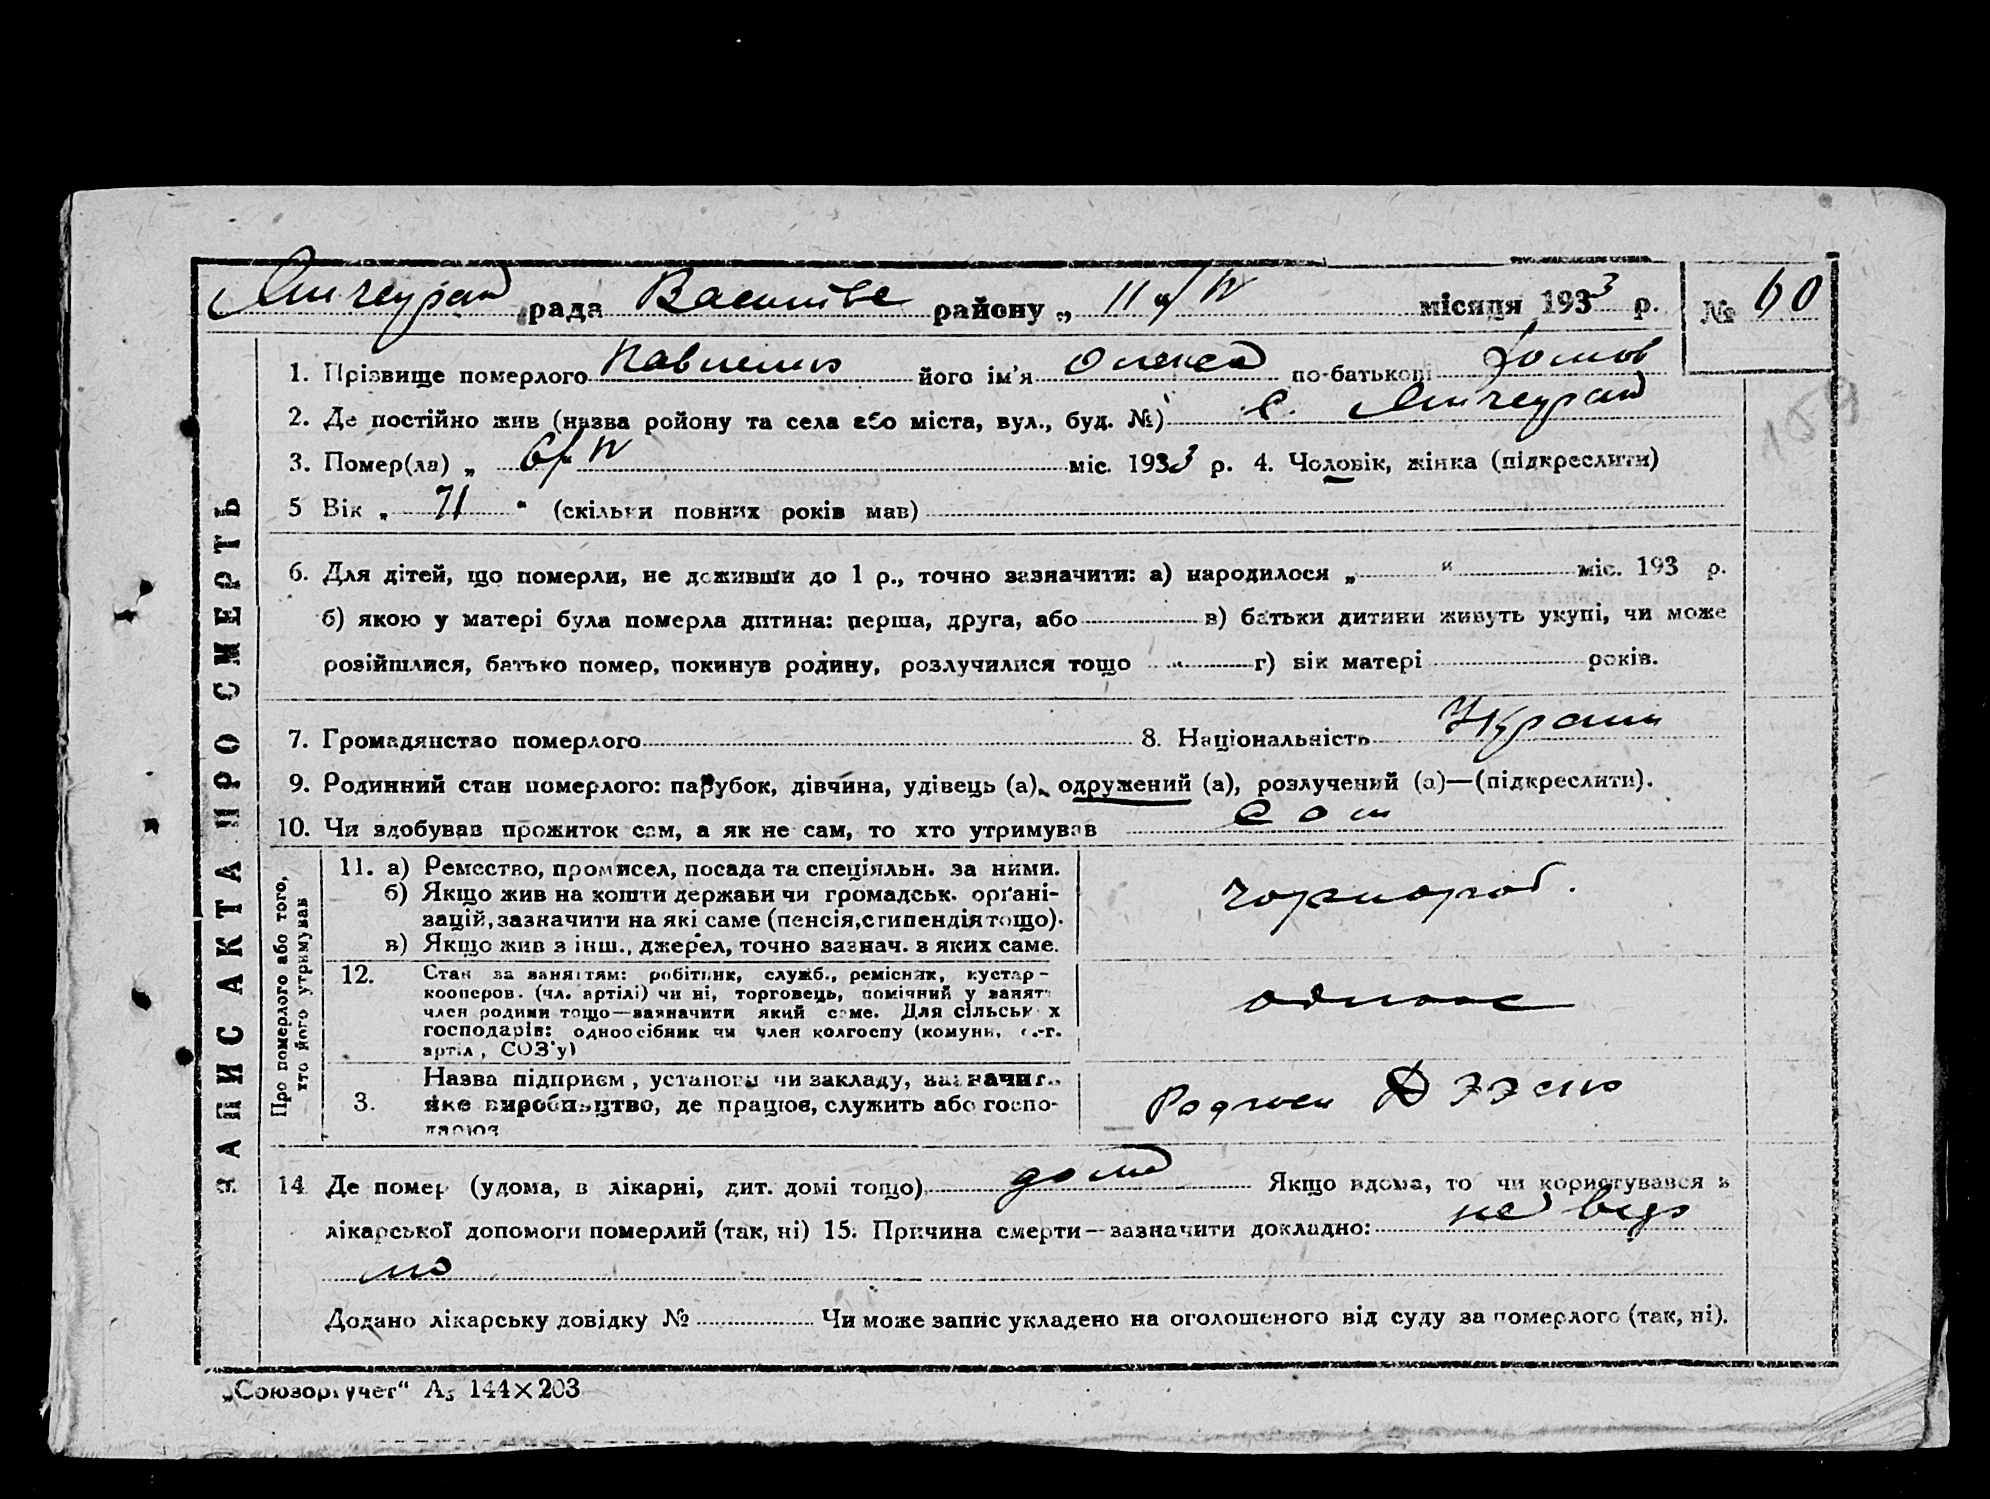 рада Василівс району „ 11 “ IV місяця 1933 р. № 60
1. Прізвище померлого Павленко його ім’я Олекса по-батькові Хомов
2. Де постійно жив (назва ройону та села або міста, вул., буд. №) с.
3. Помер(ла) „ 6/IV міс. 1933 р. 4. Чоловік, жінка (підкреслити)
5 Вік „ 71 “ (скільки повних років мав)
6. Для дітей, що померли, не доживши до 1 р., точно зазначити: а) народилося „ “ міс. 193 р.
б) якою у матері була померла дитина: перша, друга, або в) батьки дитини живуть укупі, чи може
розійшлися, батько помер, покинув родину, розлучилися тощо г) вік матері років.
7. Громадянство померлого 8. Національність Україн
9. Родинний стан померлого: парубок, дівчина, удівець (а), одружений (а), розлучений (а)—(підкреслити).
10. Чи здобував прожиток сам, а як не сам, то хто утримував сам
ЗАПИС АКТА ПРО СМЕРТЬ
Про померлого або того, хто його утримував
11. а) Ремество, промисел, посада та спеціяльн. за ними.
б) Якщо жив на кошти держави чи громадськ. орґані-
зацій, зазначити на які саме (пенсія, стипендія тощо).
в) Якщо жив з інш., джерел, точно зазнач. з яких саме.
чорнороб.
12. Стан за заняттям: робітник, служб., ремісник, кустар-
кооперов. (чл. артілі) чи ні, торговець, помічний у занят
член родини тощо—зазначити який саме. Для сільських
господарів: одноосібник чи член колгоспу (комуни, с.-г.
артіл, СОЗ’у)
одноос
3. Назва підприєм, установи чи закладу, зазначит.
яке виробництво, де працює, служить або госпо-
дарює
14 Де помер (удома, в лікарні, дит. домі тощо) дома Якщо вдома, то чи користувався з
лікарської допомоги померлий (так, ні) 15. Причина смерти—зазначити докладно: не відо
мо
Додано лікарську довідку № Чи може запис укладено на оголошеного від суду за померлого (так, ні).
„Союзоргучет“ А5 144×203